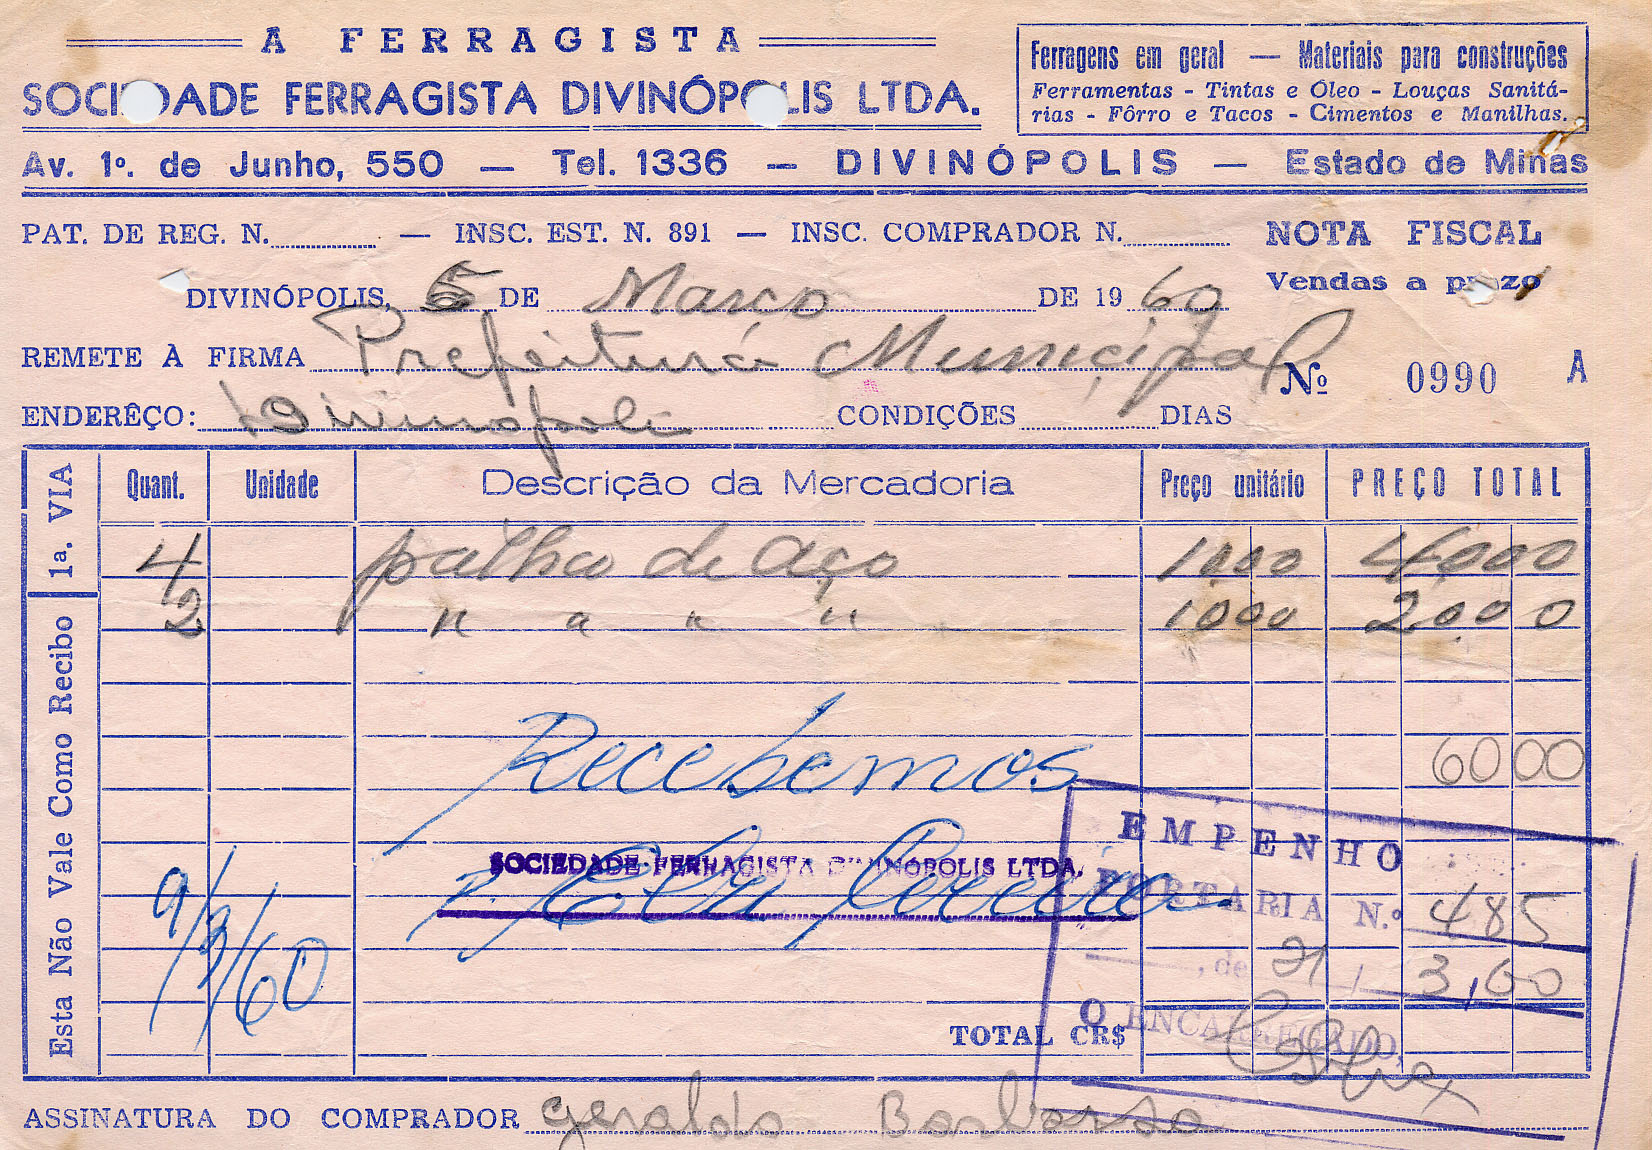 A FERRAGISTA
SOCIEDADE FERRAGISTA DIVINÓPOLIS LTDA.
Ferragens em geral — Materiais para construções
Ferramentas - Tintas e Óleo - Louças Sanitá-
rias - Fôrro e Tacos - Cimentos e Manilhas.
Av. 1º. de Junho, 550 — Tel. 1336 — DIVINÓPOLIS — Estado de Minas
PAT. DE REG. N. — INSC. EST. N. 891 — INSC. COMPRADOR N.
NOTA FISCAL
Vendas a prazo
DIVINÓPOLIS, 5 DE Março DE 1960
REMETE À FIRMA Prefeitura Municipal
Nº 0990 A
ENDERÊÇO: Divinopolis CONDIÇÕES DIAS
1a. VIA
Esta Não Vale Como Recibo
Quant. Unidade Descrição da Mercadoria Preço unitário PREÇO TOTAL
4 palha de aço 1000 4000
2 " " " " 1000 2000
Recebemos
6000
SOCIEDADE FERRAGISTA DIVINÓPOLIS LTDA.
9/3/60
EMPENHO
PORTARIA N.º 485
, de 21 / 3,60
O ENCARREGADO,
TOTAL CR$
ASSINATURA DO COMPRADOR Geraldo Barbosa